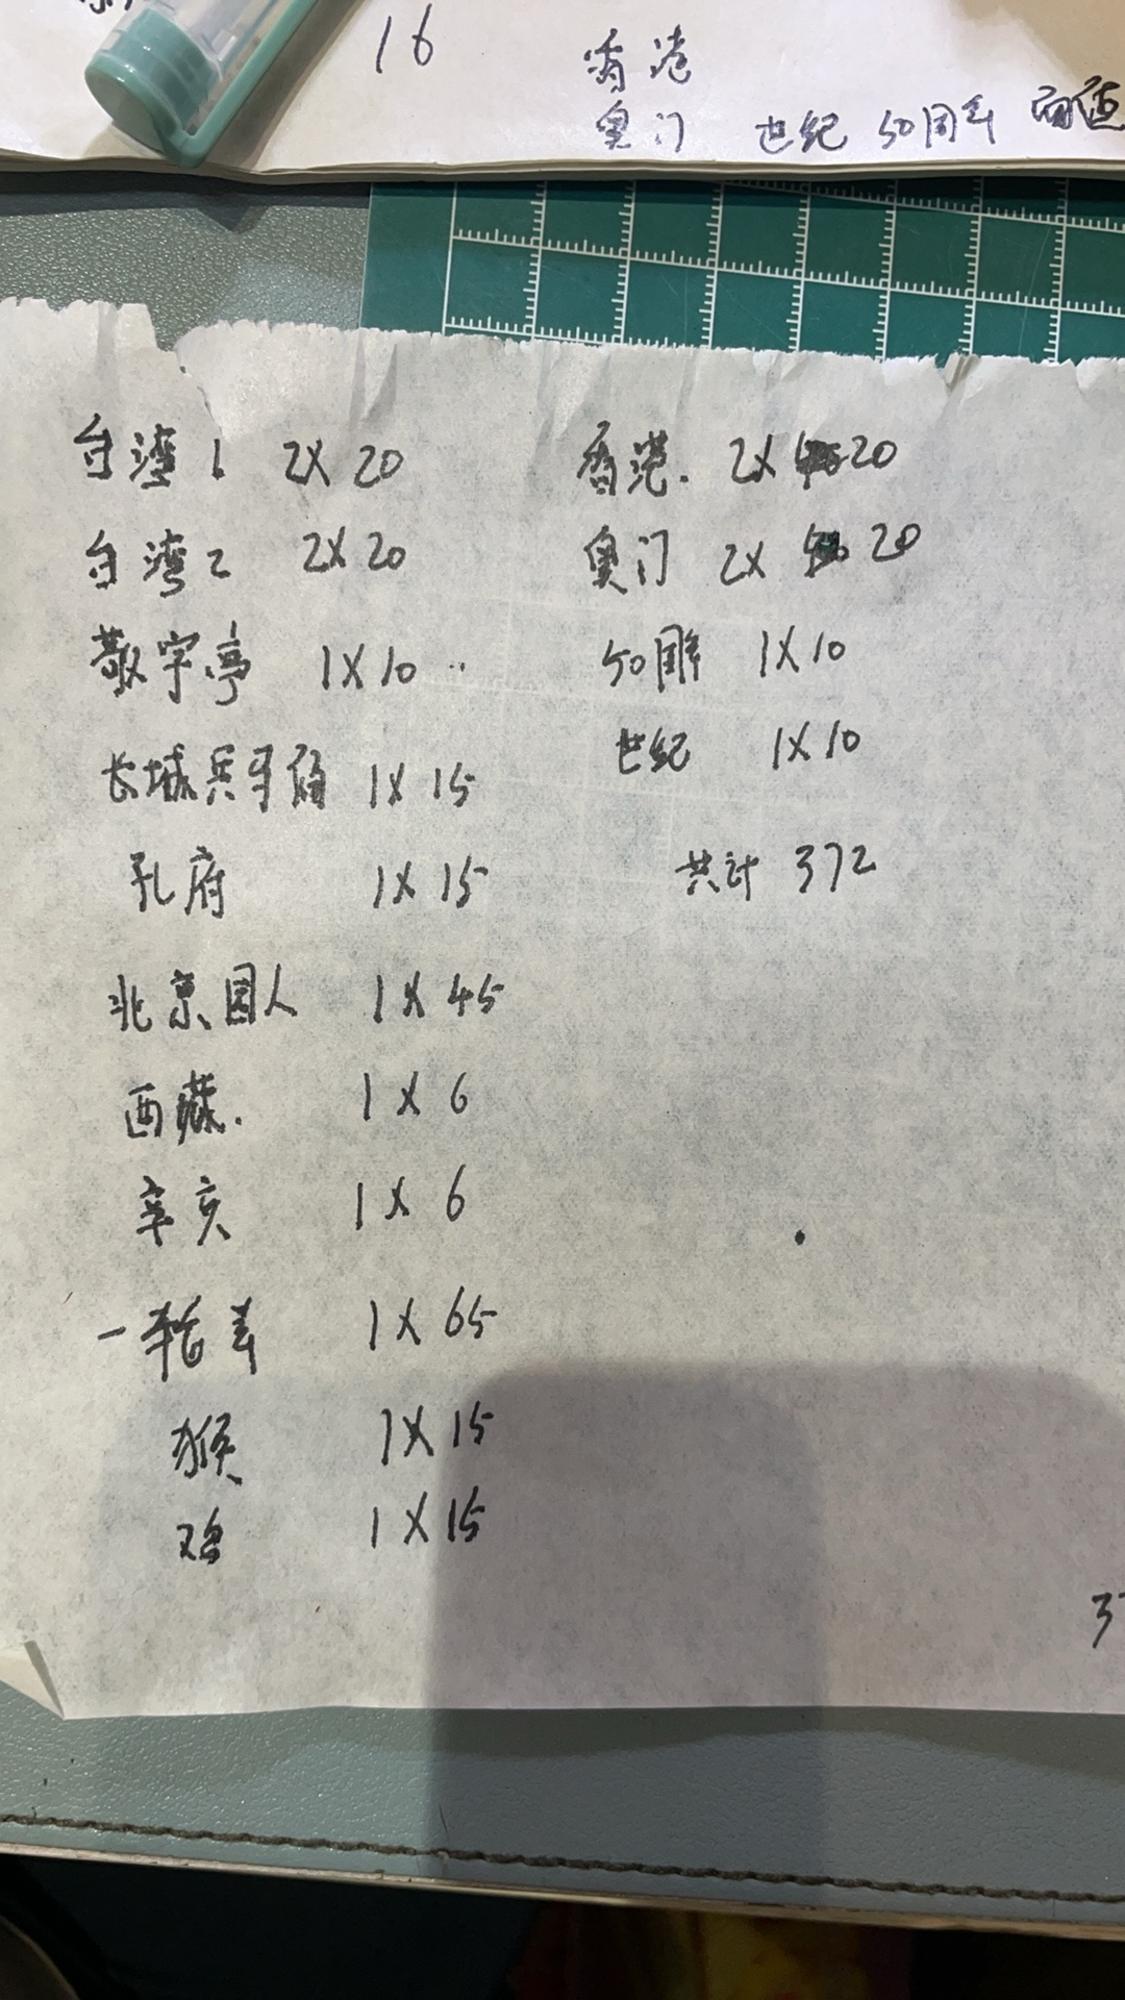 16
香港
奥门 世纪 50周年
台湾1 2X20
台湾2 2X20
敬字亭 1X10
长城兵马俑 1X15
孔府 1X15
北京园人 1X45
西藏. 1X6
辛亥 1X6
一轮羊 1X65
猴 1X15
鸡 1X15
香港. 2X 20
奥门 2X 20
50周年 1X10
世纪 1X10
共计 372